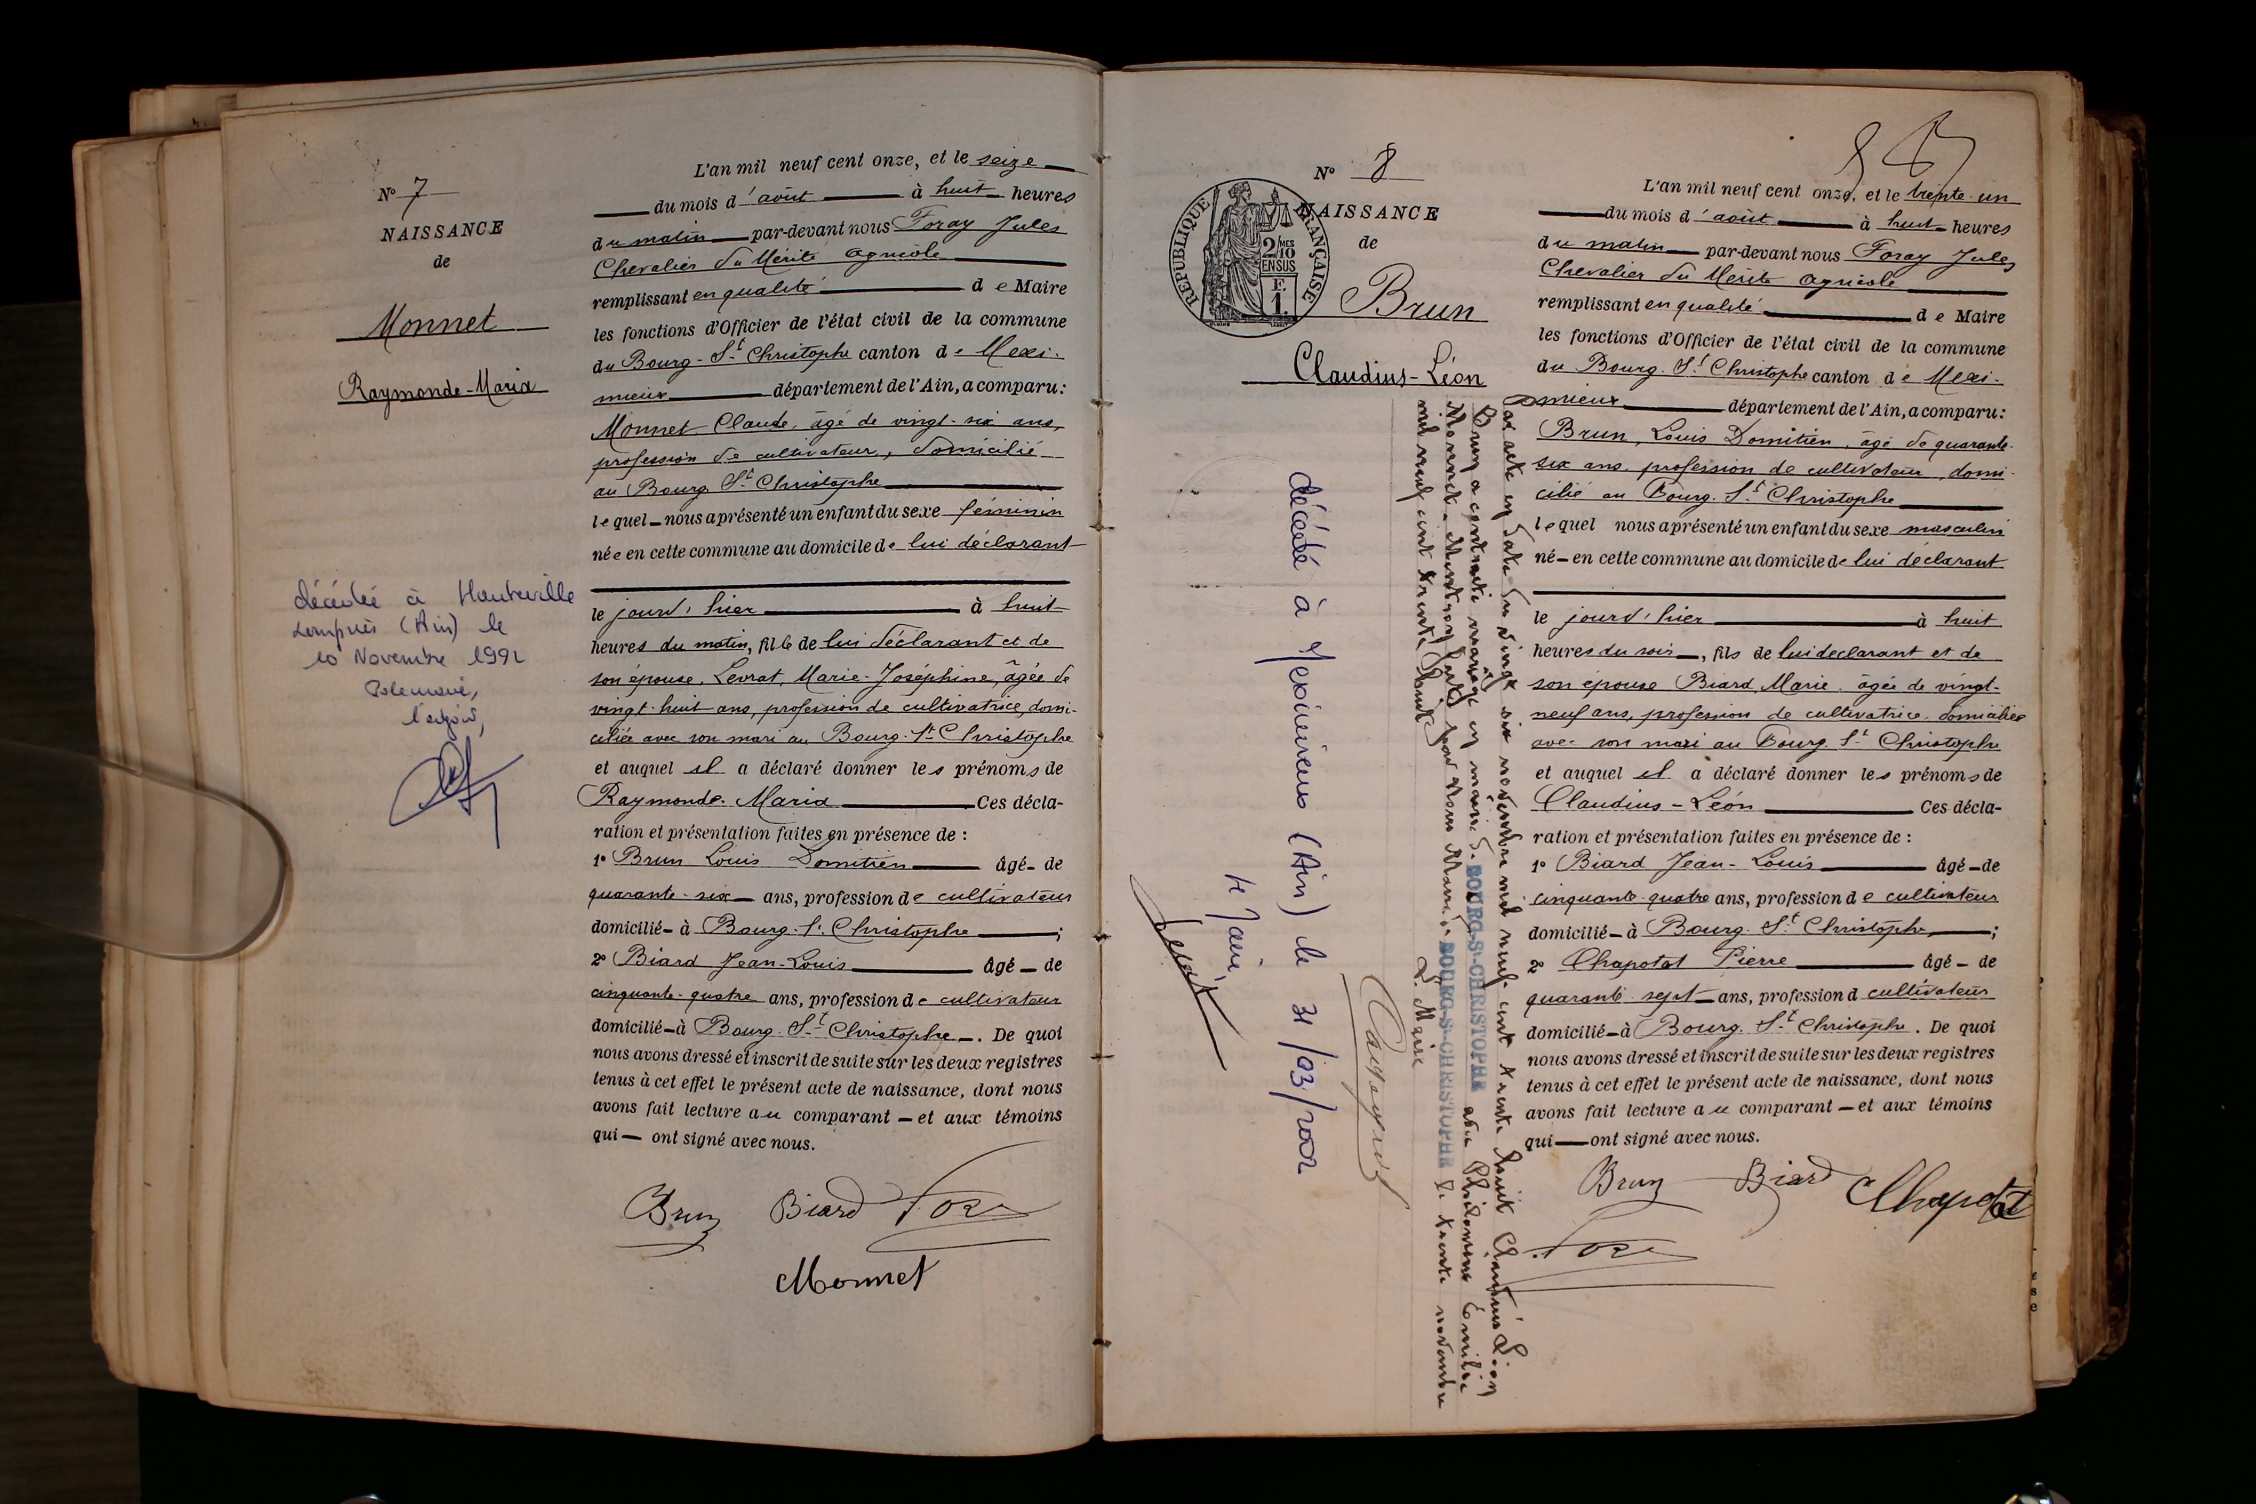 N° 7
NAISSANCE
de
Monnet
Raymonde-Maria
décédée à Hauteville
Lompnès (Ain) le
10 Novembre 1992
L'an mil neuf cent onze, et le seize
du mois d'août à huit heures
du matin par-devant nous Foray Jules
Chevalier du Mérite agricole
remplissant en qualité de Maire
les fonctions d'Officier de l'état civil de la commune
du Bourg-St Christophe canton de Mexi-
mieux département de l'Ain, a comparu:
Monnet Claude, âgé de vingt-six ans,
profession de cultivateur, domicilié
au Bourg St Christophe
lequel nous a présenté un enfant du sexe féminin
née en cette commune au domicile de lui déclarant
le jourd'hier à huit
heures du matin, fille de lui déclarant et de
son épouse, Levrat, Marie-Joséphine, âgée de
vingt-huit ans, profession de cultivatrice, domi-
ciliée avec son mari au Bourg-St Christophe
et auquel il a déclaré donner les prénoms de
Raymonde-Maria Ces décla-
ration et présentation faites en présence de :
1° Brun Louis Domitien âgé de
quarante-six ans, profession de cultivateur
domicilié à Bourg-St Christophe ;
2° Biard Jean-Louis âgé de
cinquante-quatre ans, profession de cultivateur
domicilié à Bourg-St Christophe. De quoi
nous avons dressé et inscrit de suite sur les deux registres
tenus à cet effet le présent acte de naissance, dont nous
avons fait lecture au comparant et aux témoins
qui ont signé avec nous.
Brun Biard Foray
Monnet
N° 8
NAISSANCE
de
RÉPUBLIQUE FRANÇAISE
2/10MES
EN SUS
F.
1.
Brun
Claudius-Léon
Par acte en date du vingt six novembre mil neuf cent trente huit Claudius Léon
Brun a contracté mariage en mairie de BOURG-St-CHRISTOPHE avec Philomène Émilie
mil neuf cent trente huit
BOURG-St-CHRISTOPHE le trente novembre
Le Maire
décédé à Meximieux (Ain) le 31/03/2002
le Maire,
L'an mil neuf cent onze, et le trente-un
du mois d'août à huit heures
du matin par-devant nous Foray Jules
Chevalier du Mérite agricole
remplissant en qualité de Maire
les fonctions d'Officier de l'état civil de la commune
du Bourg-St Christophe canton de Mexi-
mieux département de l'Ain, a comparu:
Brun, Louis Domitien, âgé de quarante-
six ans, profession de cultivateur, domi-
cilié au Bourg-St Christophe
lequel nous a présenté un enfant du sexe masculin
né en cette commune au domicile de lui déclarant
le jourd'hier à huit
heures du soir, fils de lui declarant et de
son épouse Biard Marie, âgée de vingt-
neuf ans, profession de cultivatrice, domiciliée
avec son mari au Bourg-St Christophe
et auquel il a déclaré donner les prénoms de
Claudius-Léon Ces décla-
ration et présentation faites en présence de :
1° Biard Jean-Louis âgé de
cinquante-quatre ans, profession de cultivateur
domicilié à Bourg-St Christophe ;
2° Chapotat Pierre âgé de
quarante sept ans, profession d cultivateur
domicilié à Bourg-St Christophe. De quoi
nous avons dressé et inscrit de suite sur les deux registres
tenus à cet effet le présent acte de naissance, dont nous
avons fait lecture au comparant et aux témoins
qui ont signé avec nous.
Brun Biard Chapotat
Foray